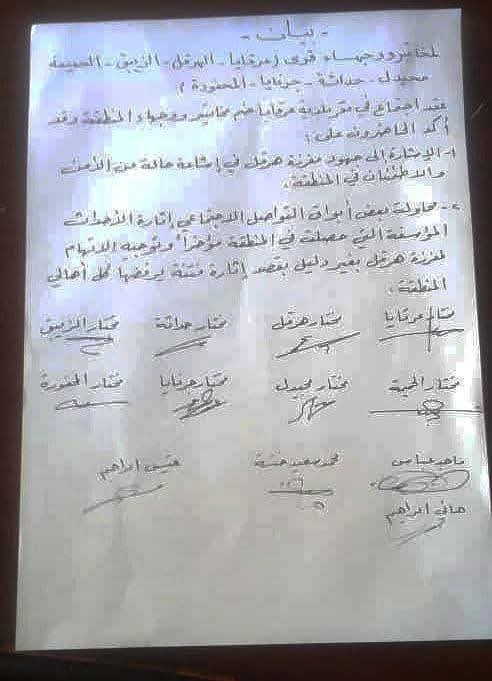 - بيان -
لمخاتير ووجهاء قرى (مرقايا - الهرقل - الزيبق - الحميمة
مجيدل - حداثة - جرنايا - المحفورة)
عقد اجتماع في مقر بلدية مرقايا ضم مخاتير ووجهاء المنطقة وقد
أكد الحاضرون على :
١- الإشارة الى جهود مفرزة هرقل في إشاعة حالة من الأمن
والاطمئنان في المنطقة.
٢- محاولة بعض أبواق التواصل الاجتماعي إثارة الأحداث
المؤسفة التي حصلت في المنطقة مؤخراً وتوجيه الاتهام
لمفرزة هرقل بغير دليل بقصد إثارة فتنة يرفضها كل أهالي
المنطقة .
مختار مرقايا مختار هرقل مختار حداثة مختار الزيبق
مختار مجيدل مختار جرنايا مختار المحفورة
ماهر عباس محمد سعيد حسنة ابراهيم
هاني ابراهيم